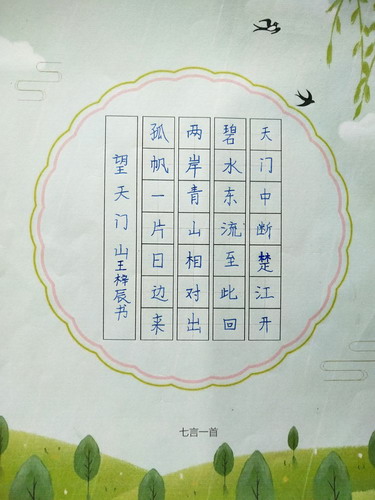 天门中断楚江开
碧水东流至此回
两岸青山相对出
孤帆一片日边来
望天门山王梓辰书
七言一首